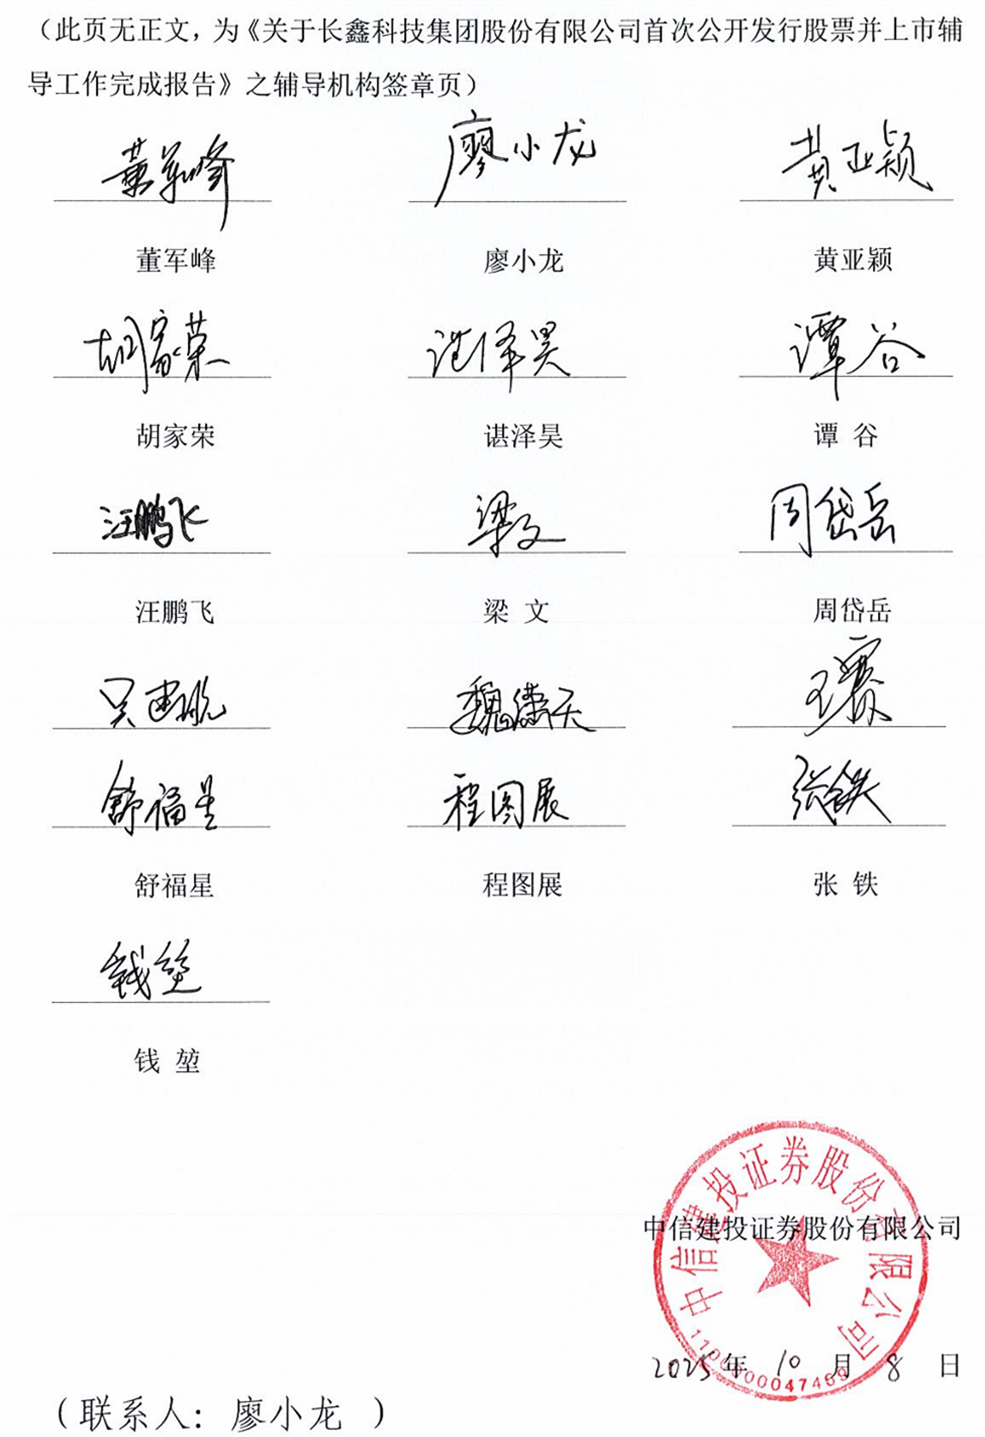 （此页无正文，为《关于长鑫科技集团股份有限公司首次公开发行股票并上市辅
导工作完成报告》之辅导机构签章页）
董军峰 廖小龙 黄亚颖
董军峰 廖小龙 黄亚颖
胡家荣 谌泽昊 谭谷
胡家荣 谌泽昊 谭 谷
汪鹏飞 梁文 周岱岳
汪鹏飞 梁 文 周岱岳
吴建航 魏 天 王赛
舒福星 程图展 张铁
舒福星 程图展 张 铁
钱堃
钱 堃
中信建投证券股份有限公司
中信建投证券股份有限公司
2025年 10 月 8 日
（联系人：廖小龙 ）